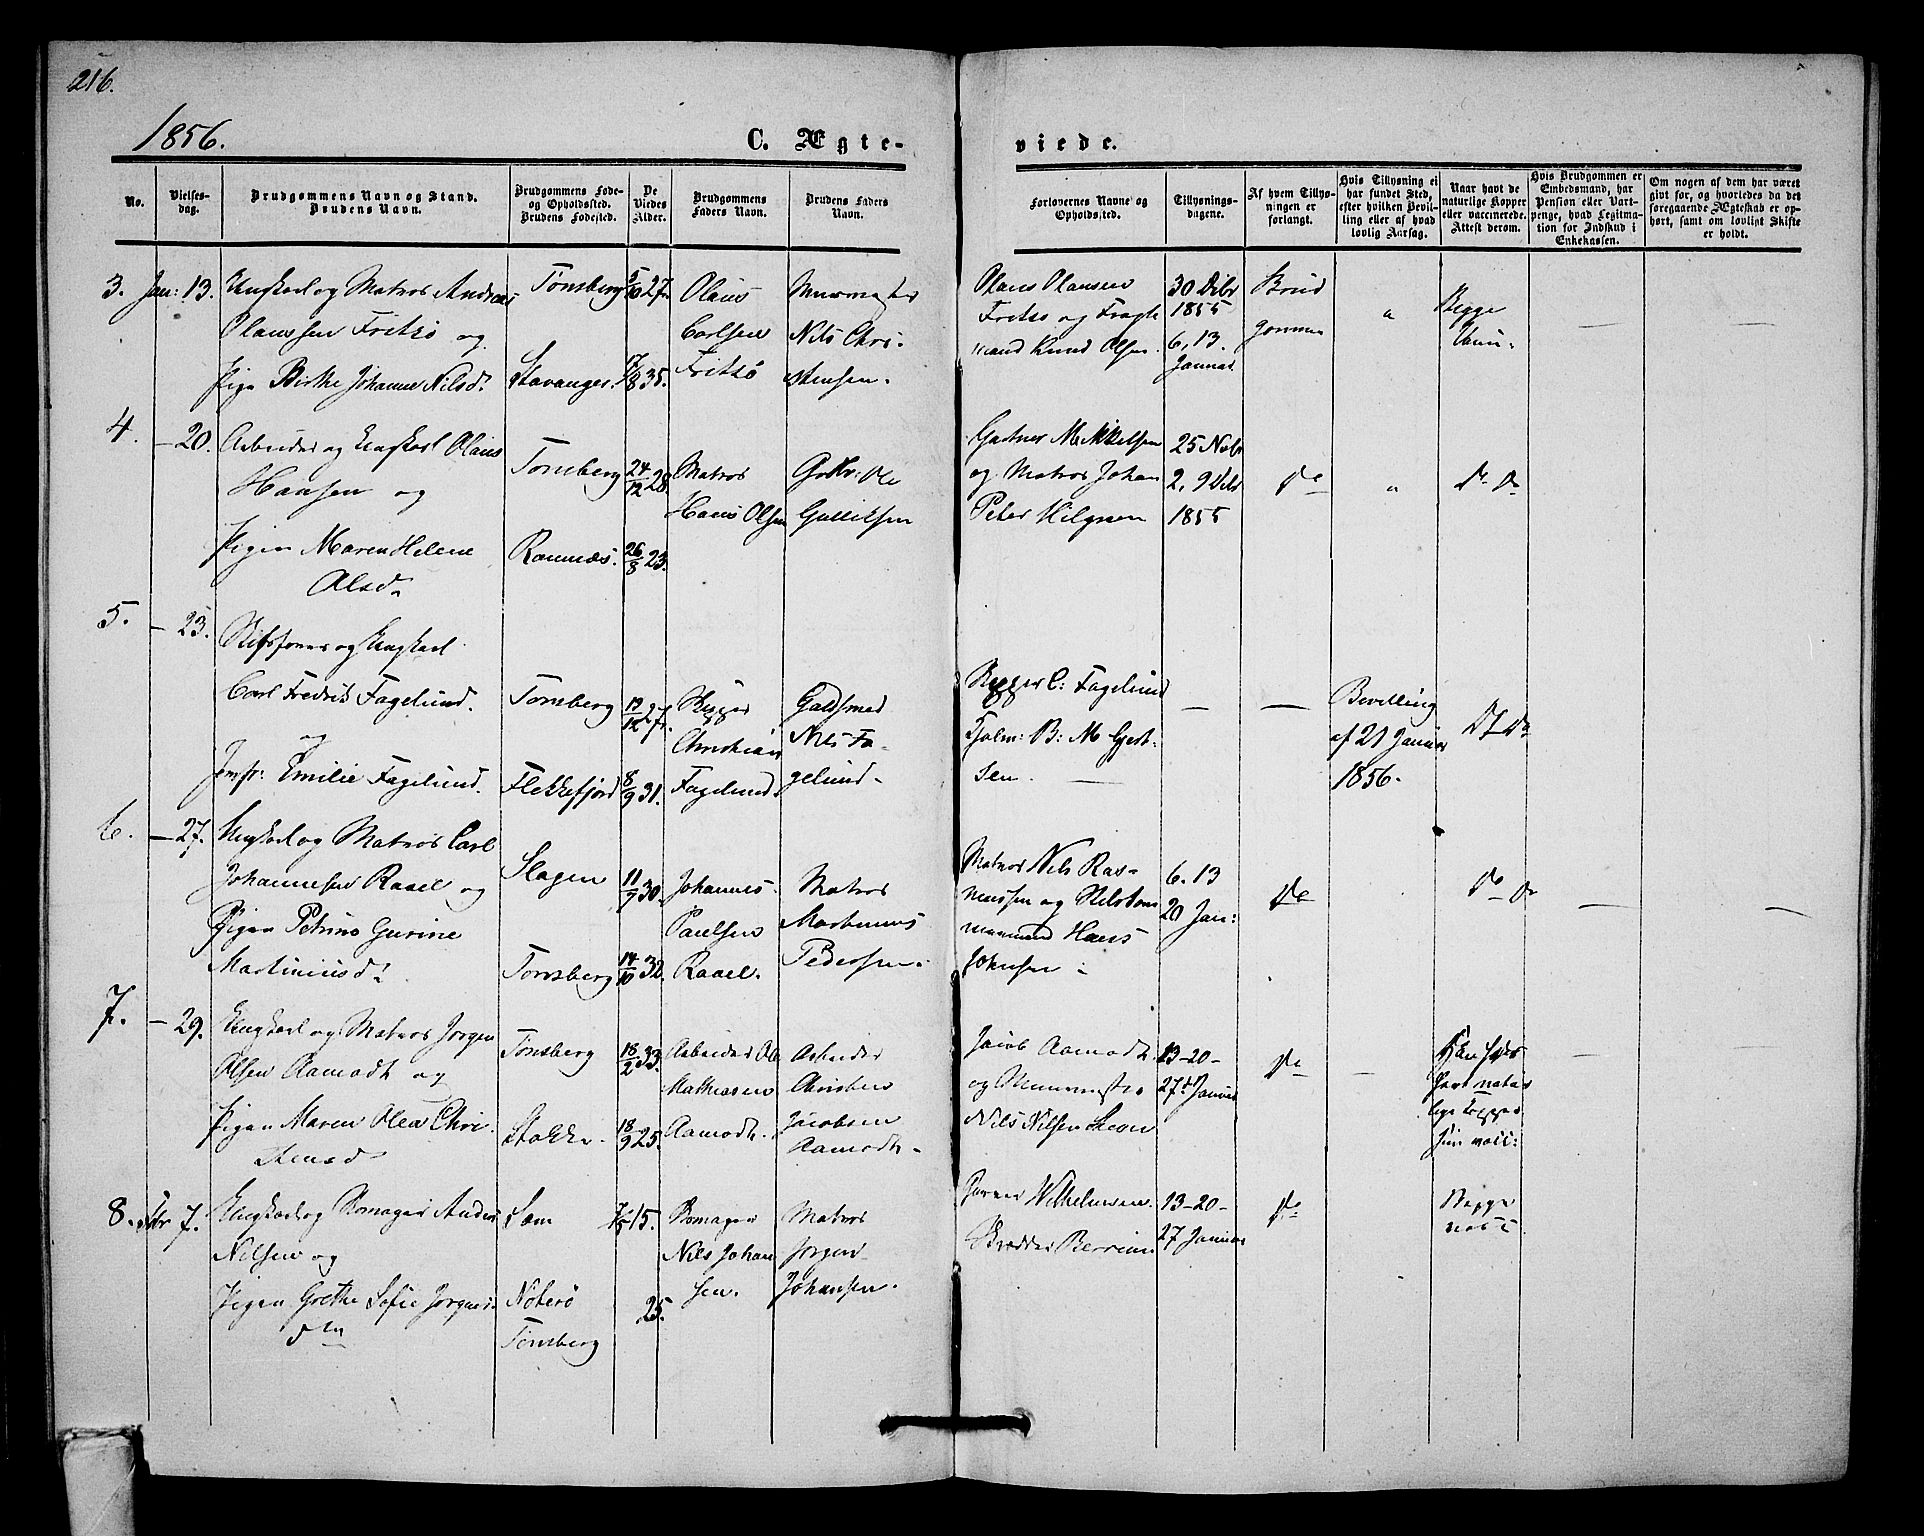 216.
1856.
C. Ægte-
viede.
No.
Vielses-
dag.
Brudgommens Navn og Stand.
Brudens Navn.
Brudgommens Føde-
og Opholdssted.
Brudens Fødested.
De
Viedes
Alder.
Brudgommens
Faders Navn.
Brudens Faders
Navn.
Forlovernes Navne og
Opholdssted.
Tillysnings-
dagene.
Af hvem Tillys-
ningen er
forlangt.
Hvis Tillysning ei
har fundet Sted,
efter hvilken Bevil-
ling eller af hvad
lovlig Aarsag.
Naar havt de
naturlige Kopper
eller vaccinerede.
Attest derom.
Hvis Brudgommen er
Embedsmand, har
Pension eller Vart-
penge, hvad Legitima-
tion for Indskud i
Enkekassen.
Om nogen af dem har været
gift før, og hvorledes da det
foregaaende Ægteskab er op-
hørt, samt om lovligt Skifte
er holdt.
3. Jan: 13.
Ungkarl og Matros Andreas
Olaussen Fritsø og
Pigen Birthe Johanne Nilsd.
Tønsberg
Stavanger.
5/10 27.
17/8 35.
Olaus
Carlsen
Fritsø
Nils Chri-
stensen.
Olaus Olaussen
Fritsø og Fragte
mand Knud Olsen.
30 Dcbr
1855
6, 13.
Januar
Brud
gommen
"
Begge
4. — 20.
Arbeider og Ungkarl Olaus
Hansen og
Pigen Maren Helene
Olsd.
Tønsberg
Ramnæs.
24/12 28.
26/8 23.
Matros
Hans Olsen
Ole
Gulliksen
Gartner Mikkelsen
og Matros Johan
Peter
25 Nobr
2, 9 Dcbr
1855
Do
"
Do Do
5. — 23.
og Ungkarl
Carl Fredrik Fagelund.
og
Jomfr: Emilie Fagelund.
Tønsberg
Flekkefjord
19/12 27.
8/9 31.
Christian
Fagelund.
Guldsmed
Nils Fa-
gelund.
C: Fagelund
B: M.
sen.
—
—
Bevilling
af 21 Januar
1856.
Do Do
6. — 27.
Ungkarl og Matros Carl
Johannesen Raael og
Pigen Petrine Gurine
Martiniusd.
Slagen
Tønsberg
11/9 30.
14/10 32.
Johannes
Paulsen
Raael.
Matros
Martinius
Pedersen.
Matros Nils Ras-
mussen og
Hans
Johnsen.
6. 13
20 Jan:
Do
Do Do
—
—
7. — 29.
Ungkarl og Matros Jørgen
Olsen Aamodt og
Pigen Maren Olea Chri-
stensd
Tønsberg
Stokke.
18/2 33.
18/9 25.
Arbeider Ole
Mathiasen
Aamodt.
Arbeider
Christen
Jacobsen
Aamodt.
Jacob Aamodt
og
Nils Nilsen
13-20-
27de Januar
Do
—
havt natur
lige Kopper
—
8. Fbr 7.
Ungkarl og Romager Anders
Nilsen og
Pigen Grethe Sofie Jørgens-
dtr
Sem
Nøterø
Tønsberg
25.
Romager
Nils Johan
sen.
Matros
Jørgen
Johansen.
Wilhelmsen.
Skrædder
13-20-
27 Januar
Do
Begge